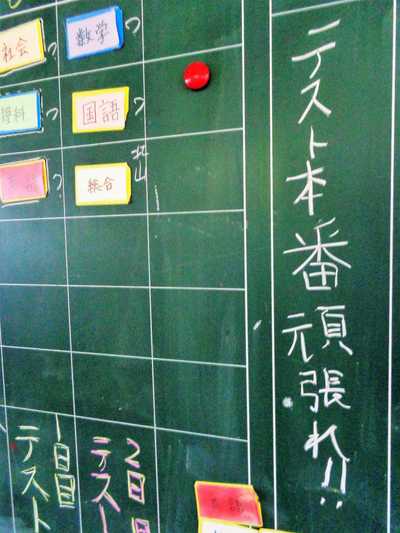 テスト本番頑張れ!!
数学
つ
国語
つ
総合
北山
社会
つ
理科
つ
2日目
テスト
1日目
テスト